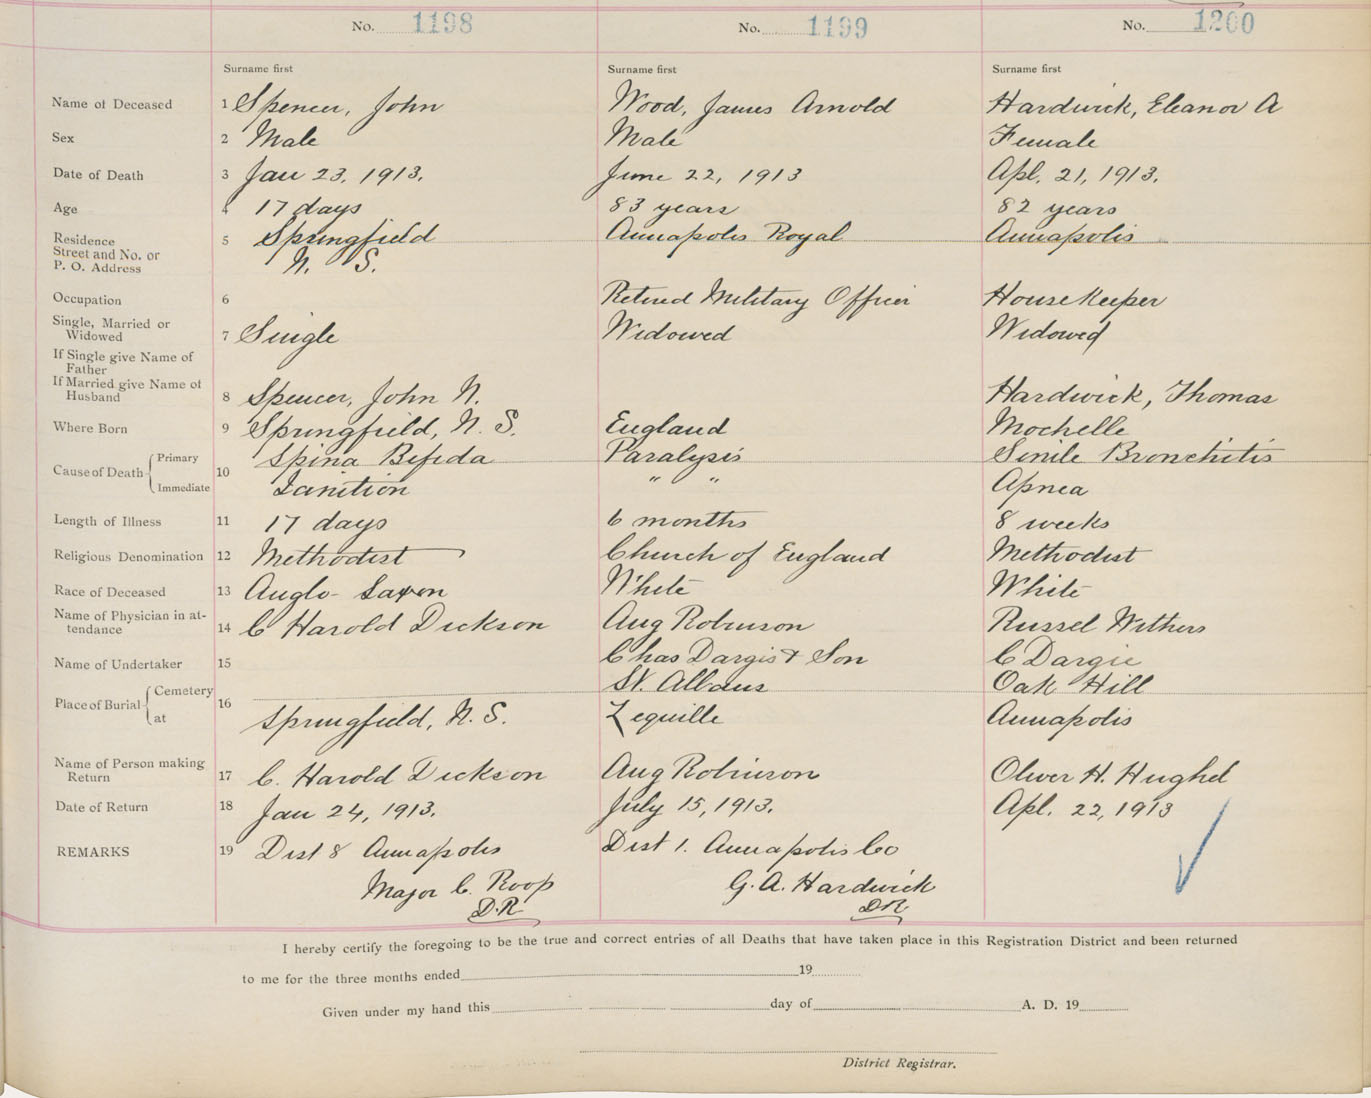 No. 1198 No. 1199 No. 1200
Surname first Surname first Surname first
Name of Deceased 1 Spencer, John Wood, James Arnold Hardwick, Eleanor A
Sex 2 Male Male Female
Date of Death 3 Jan 23, 1913. June 22, 1913 Apl. 21, 1913.
Age 4 17 days 83 years 82 years
Residence
Street and No. or
P. O. Address
5 Springfield Annapolis Royal Annapolis
N. S.
Occupation 6 Retired Military Officer Housekeeper
Single, Married or
Widowed
7 Single Widowed Widowed
If Single give Name of
Father
If Married give Name of
Husband
8 Spencer, John N. Hardwick, Thomas
Where Born 9 Springfield, N. S. England Mochelle
Cause of Death 10
Primary Spina Bifida Paralysis Sinile Bronchitis
Immediate Ianition " " Apnea
Length of Illness 11 17 days 6 months 8 weeks
Religious Denomination 12 Methodist Church of England Methodist
Race of Deceased 13 Anglo-Saxon White White
Name of Physician in at-
tendance
14 C Harold Dickson Aug Robinson Russel Withers
Name of Undertaker 15 Chas Dargis & Son C Dargie
Place of Burial 16
Cemetery St. Albans Oak Hill
at Springfield, N. S. Lequille Annapolis
Name of Person making
Return
17 C. Harold Dickson Aug Robinson Oliver H. Hughel
Date of Return 18 Jan 24, 1913. July 15, 1913. Apl. 22, 1913
REMARKS 19 Dist 8 Annapolis Dist 1. Annapolis Co
Major C. Roop G. A. Hardwick
D.R DR
I hereby certify the foregoing to be the true and correct entries of all Deaths that have taken place in this Registration District and been returned
to me for the three months ended 19
Given under my hand this day of A. D. 19
District Registrar.